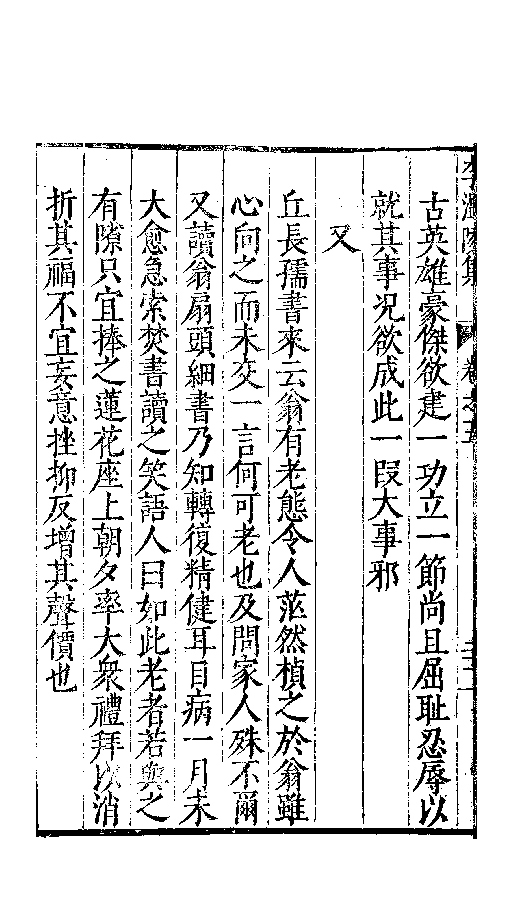 古英雄豪傑欲建一功立一節尚且屈耻忍辱以
就其事况欲成此一叚大事邪
又
丘長孺書來云翁有老態令人茫然楨之於翁雖
心向之而未交一言何可老也及問家人殊不爾
又讀翁扇頭細書乃知轉復精健耳目病一月未
大愈急索焚書讀之笑語人曰如此老者若與之
有隙只宜捧之蓮花座上朝夕率大衆禮拜以消
折其福不宜妄意挫抑反增其聲價也